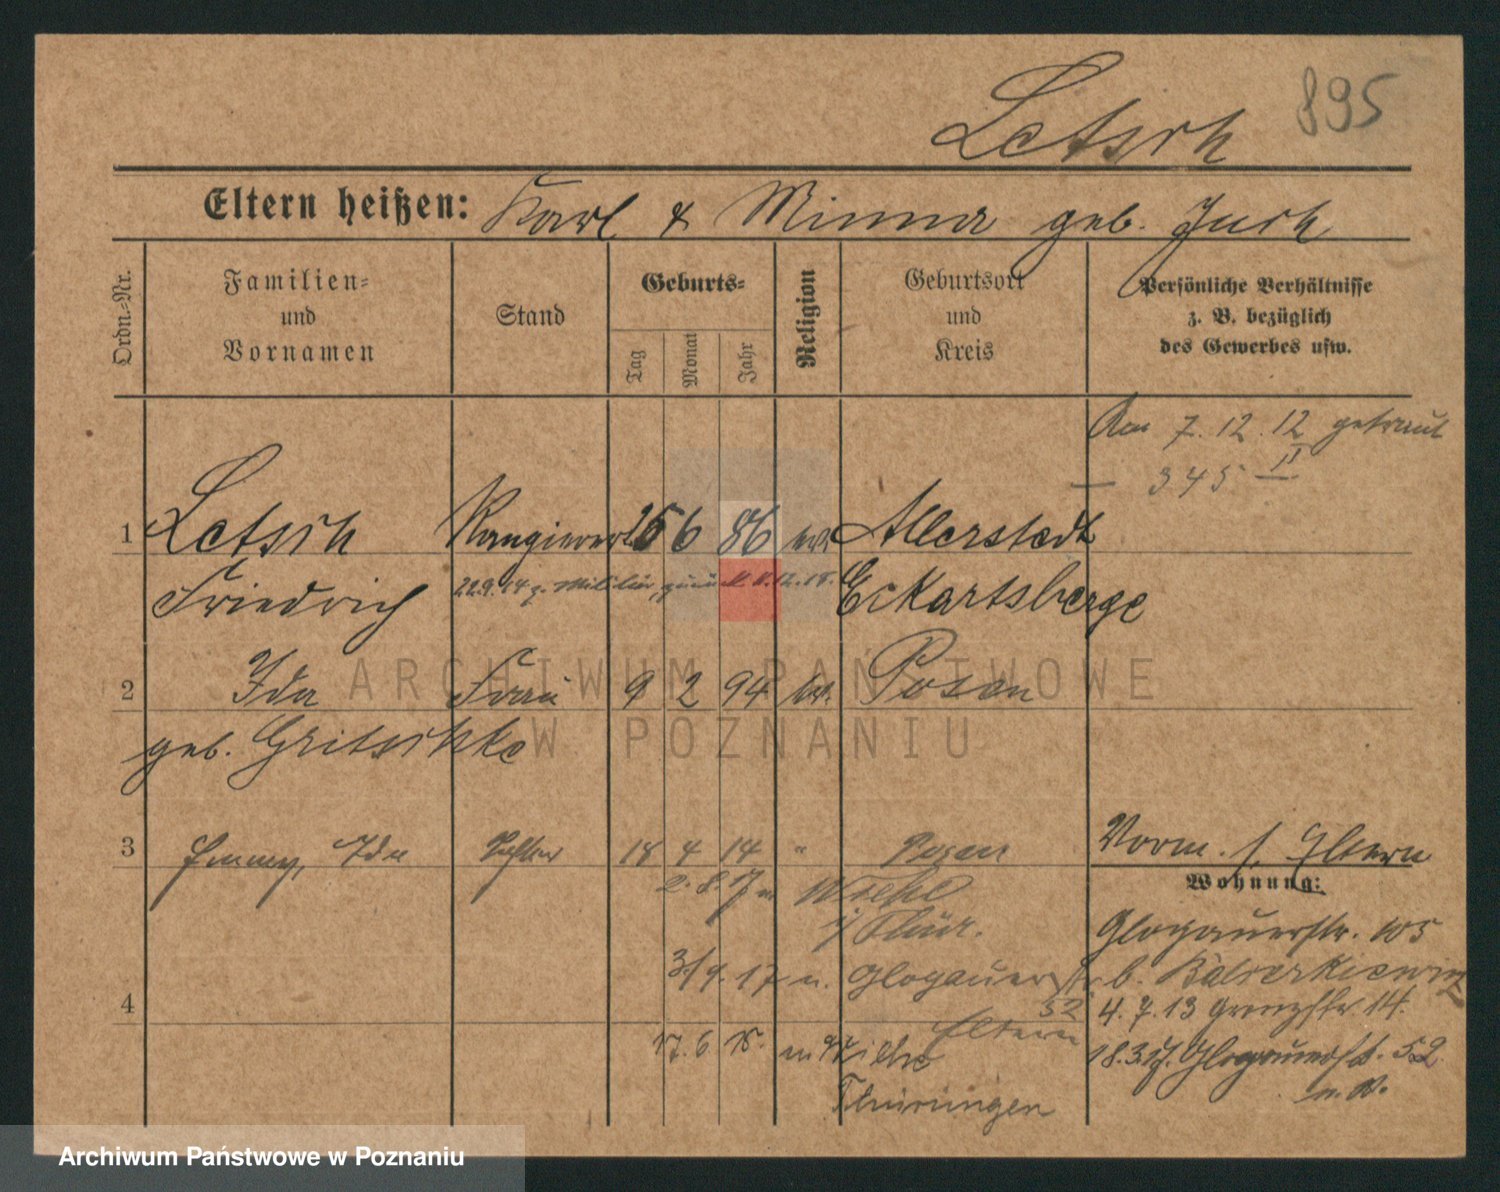 895
Letsch
Eltern heißen: Karl & Minna geb. Jusch
Ordn.-Nr.
Familien-
und
Vornamen
Stand
Geburts-
Tag
Monat
Jahr
Religion
Geburtsort
und
Kreis
Persönliche Verhältnisse
z. B. bezüglich
des Gewerbes usw.
Am 7.12.12 getraut
345 II
1 Letsch Rangierer 25 6 86 ev. Allerstedt
Friedrich 22.9.14 z. Militär, zurück 11.12.18. Eckartsberge
2 Ida Frau 9 2 94 ev. Posen
geb. Gritschke
3 Emmy, Ida Tochter 18 4 14 " Posen Vorm. s. Eltern
Wohnung:
2.8.17 n Wiehe
i/Thür. Glogauerstr. 105
3/9.17 n. Glogauerstr. b.
52 4.7.13 Grenzstr. 14.
4 Eltern
17.6 18. n. Wiehe 18.3.17. Glogauerst. 52
Thüringen n. W.
ARCHIWUM PAŃSTWOWE
W POZNANIU
Archiwum Państwowe w Poznaniu